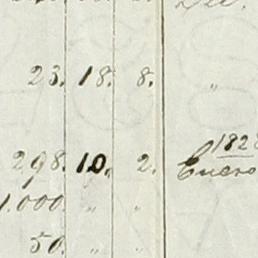 23. 18. 8. "
298. 10. 2. Enero 1828
1.000 " "
50. " "